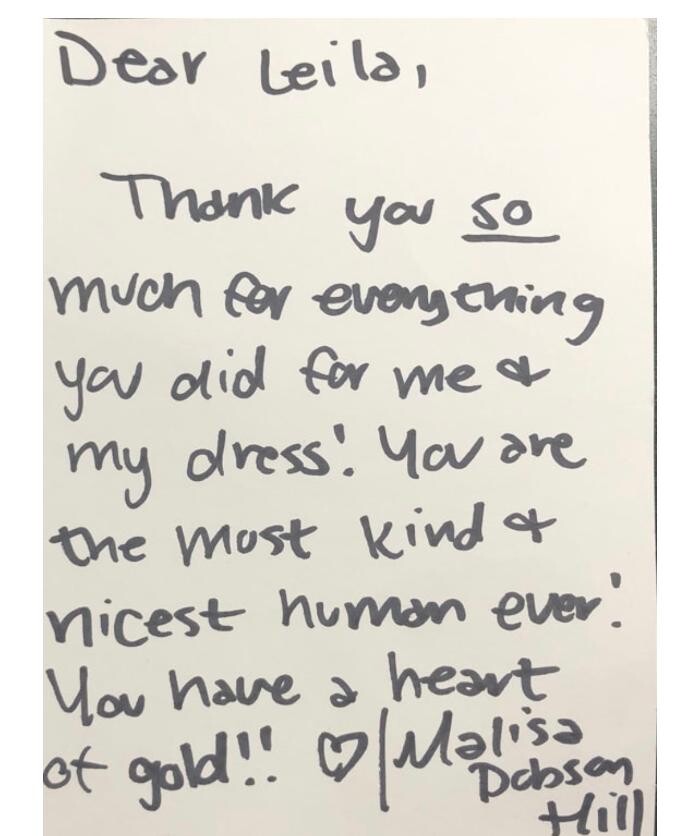 Dear Leila,
Thank you so
much for everything
you did for me &
my dress! You are
the most kind &
nicest human ever!
You have a heart
of gold!! ♡ | Malisa
Dobson
Hill